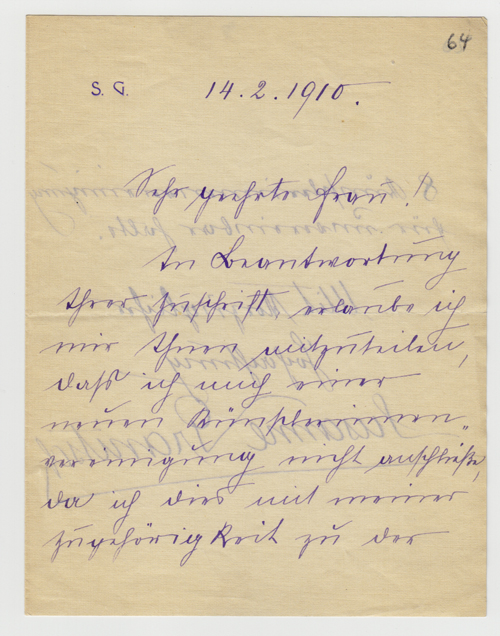 64
S. G. 14.2.1910.
Sehr geehrte Frau!
In Beantwortung
Ihrer Zuschrift erlaube ich
mir Ihnen mitzuteilen,
daß ich mich einer
neuen Künstlerinnen-
vereinigung nicht anschließe,
da ich dies mit meiner
Zugehörigkeit zu der